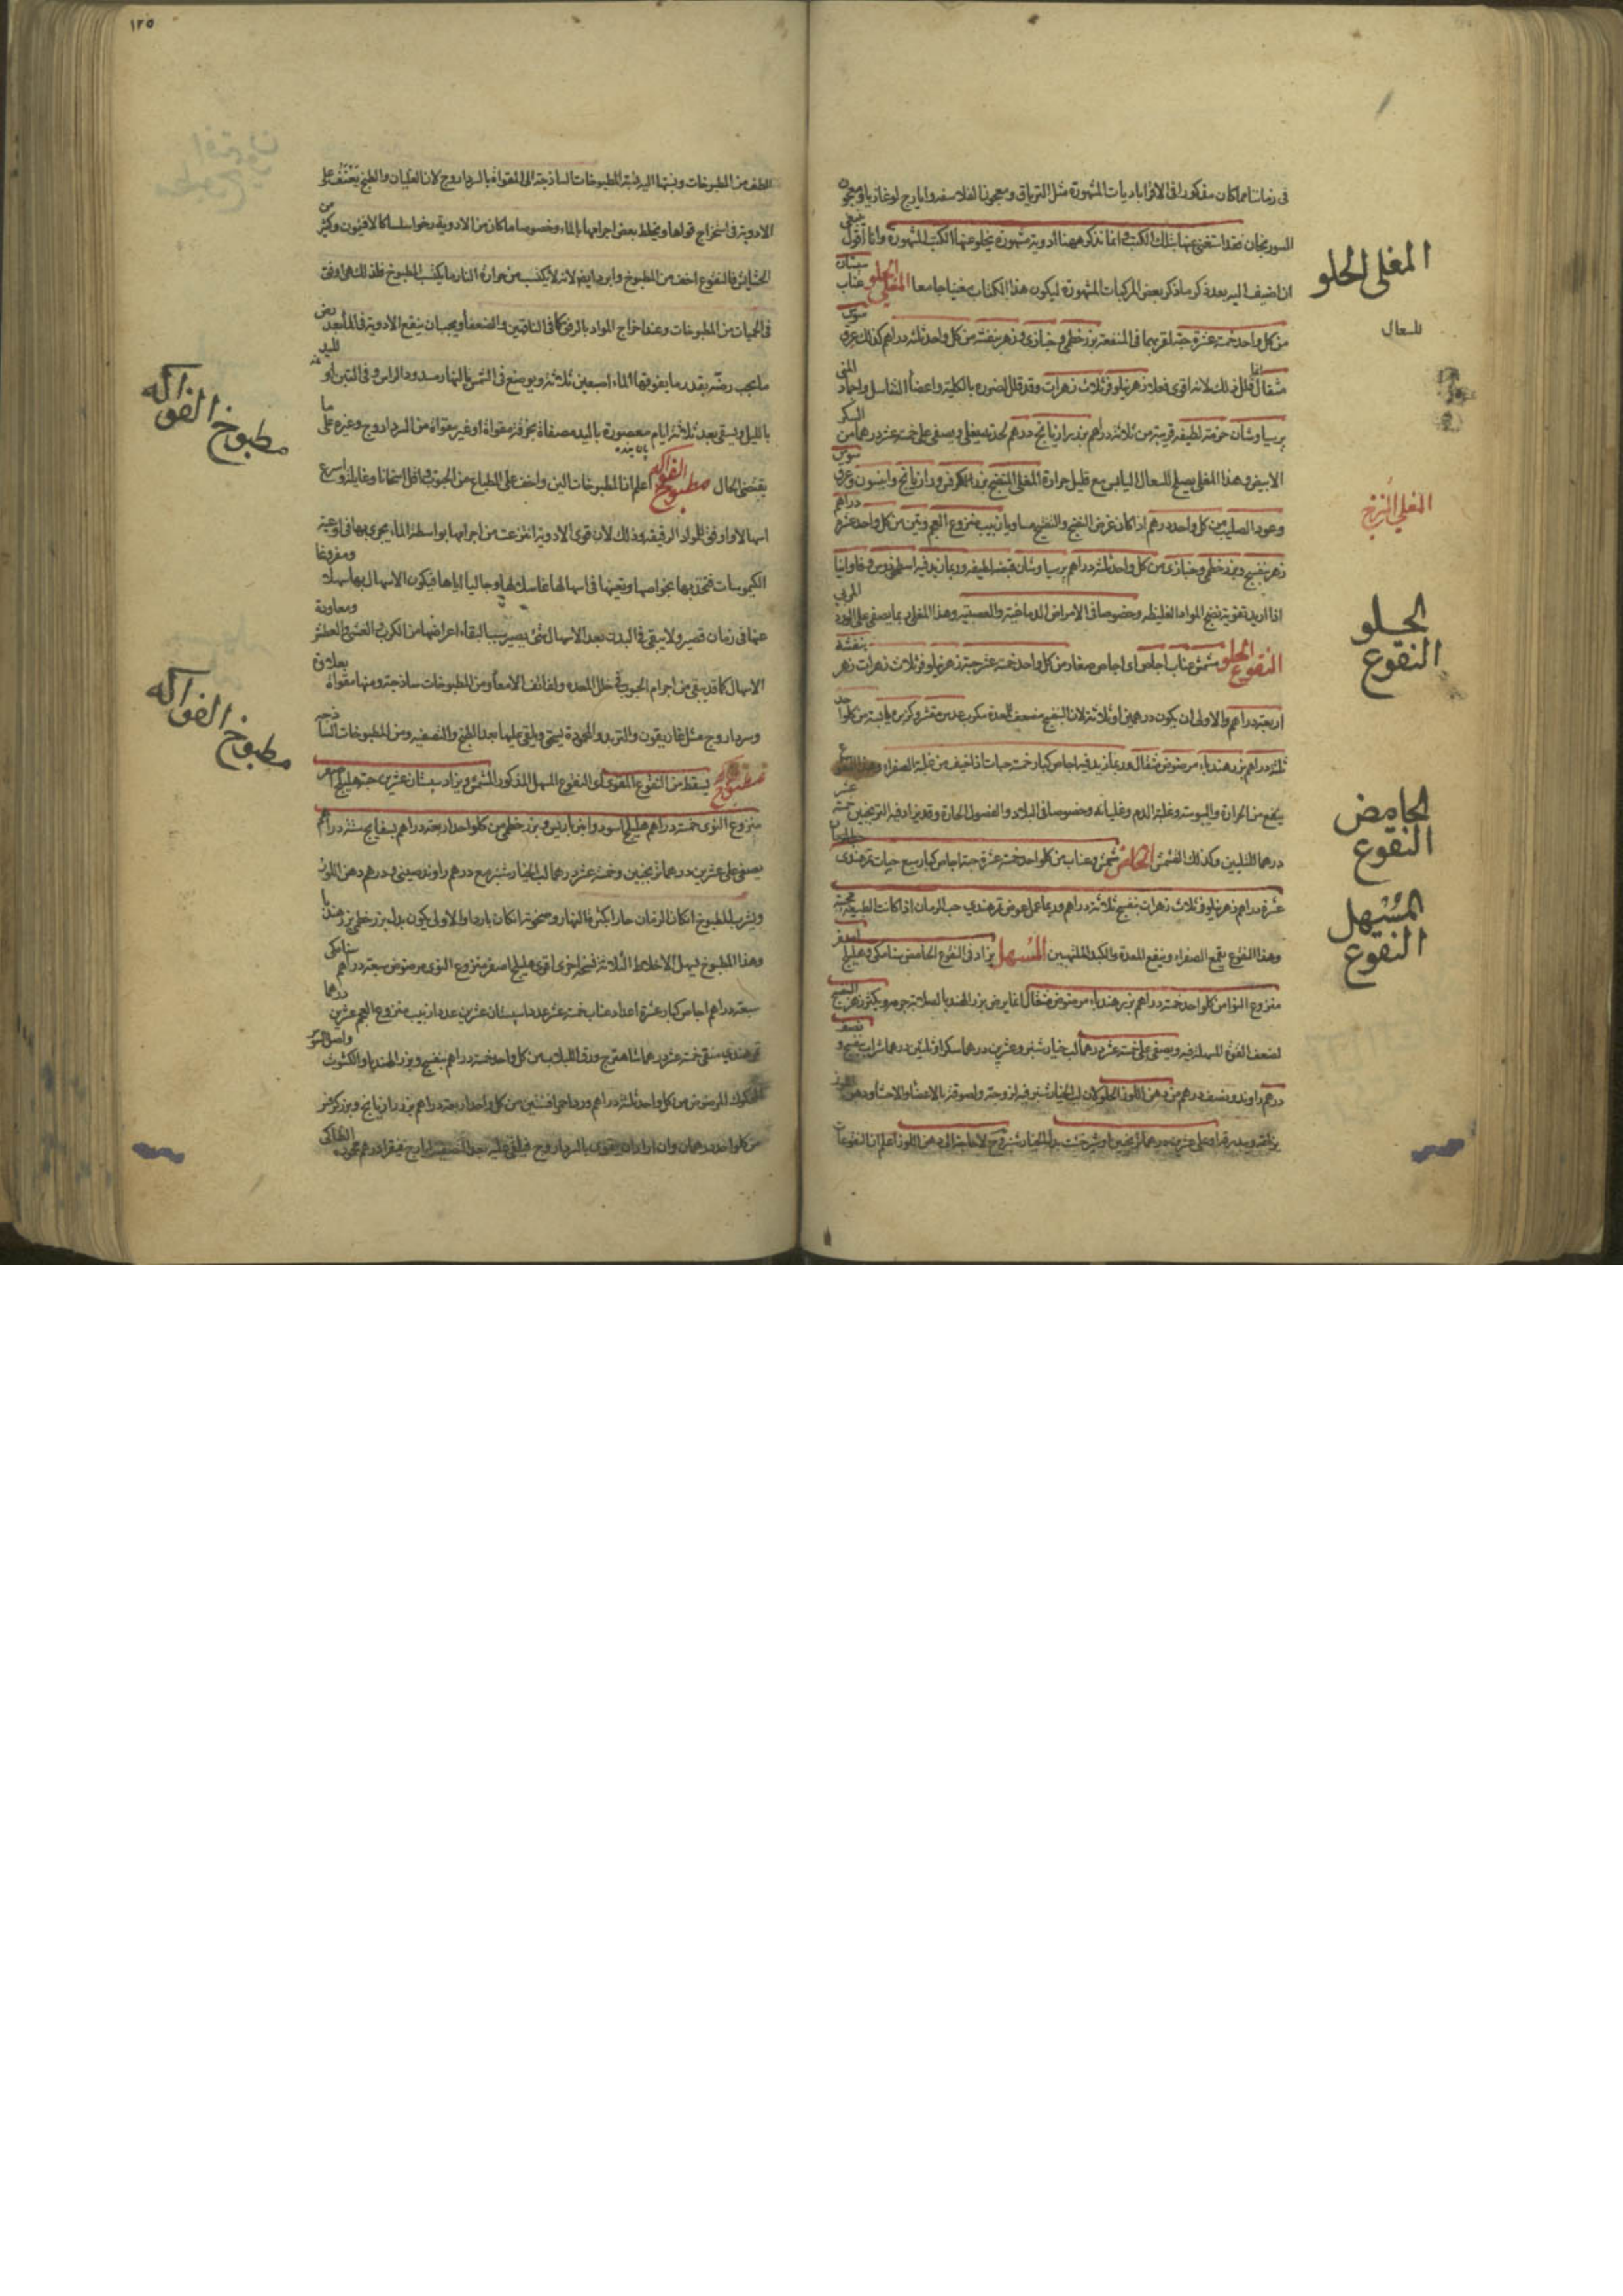 فى زماننا مما كان مذكورا فى الاقراباديات المشهورة مثل الترياق ومعجون الفلاسفه وايارج لوغاذيا ومعجون
السورنجان فقد استغنى عنها بتلك الكتب وانما نذكر ههنا ادوية مشهورة يخلو عنها الكتب المشهورة وانا اقول ينبغى
ان اضيف اليه بعد ذكر ما ذكر بعض المركبات المشهورة ليكون هذا الكتاب مغنيا جامعا المغلى الحلو عناب سبستان
المغلى الحلو
من كل واحد خمسة عشرة حبة لقربهما فى المنفعة بزر خطمى وخبازى وزهر بنفسج من كل واحد ثلثة دراهم كذلك عرق سوس
للسعال
مثقال قلل ذلك لانه اقوى فعلا زهر نيلوفر ثلاث زهرات وقد قلل لضرره بالكلية واعضا التناسل واجماد المنى
برسياوشان حزمة لطيفه قريبة من ثلاثة دراهم بزر رازيانج درهم لحدته يغلى ويصفى على خمسة عشر درهما من السكر
الابيض وهذا المغلى يصلح للسعال اليابس مع قليل حرارة المغلى المنضج بزر الكرفس ورازيانج وانيسون وعرق سوس
وعود الصليب من كل واحد درهم اذا كان غرض النضج والتفتيح مساويا زبيب منزوع العجم وتين من كل واحد عشرة دراهم
زهر بنفسج وبزر خطمى وخبازى من كل واحد ثلثة دراهم برسياوشان قبضة لطيفه وربما زيد فيه اسطوخودوس وفاوانيا
اذا اريد تقوية نضج المواد الغليظه وخصوصا فى الامراض الدماغية والعصبية وهذا المغلى ربما يصفى على الورد المربى
الحلو
النقوع
النقوع الحلو مشمش عناب اجاص اى اجاص صغار من كل واحد خمسة عشر حبة زهر نيلوفر ثلاث زهرات زهر بنفشه
اربعة دراهم والاولى ان يكون درهمين او ثلاثة لان البنفسج مضعف للمعدة
ثلثة دراهم بزر هندباء مرضوض مثقال وربما زيد فيه اجاص كبار خمسة حبات اذا خيف من غلبة الصفراء
ينفع من الحرارة واليبوسة وغلبة الدم وغليانه وخصوصا فى البلاد والفصول الحارة وقد يزاد فيه الترنجبين خمسة عشر
الحامض
النقوع
درهما للتليين وكذلك الشمش الحامض مشمش وعناب من كل واحد خمسة عشرة حبة اجاص كبار سبع حبات تمرهندى
عشرة دراهم زهر نيلوفر ثلاث زهرات بنفسج ثلاثة دراهم وربما عمل عوض تمرهندى حب الرمان اذا كانت الطبيعة
المسهل
النقوع
وهذا النقوع يقمع الصفراء وينفع للمعدة والكبد الملتهبين المسهل يزاد فى النقوع الحامض سنامكى وهليلج اصفر
منزوع النوا من كل واحد خمسة دراهم بزر هندباء مرضوض مثقال انما يرض بزر الهندبا لصلابة جرمه ويكثر زهر البنفسج
لضعف القوة المسهلة فيه ويصفى على خمسة عشر درهما لب خيار شنبر وعشرين درهما سكرا وثلثين درهما شراب بنفسج ونصف
درهم راوند ونصف درهم من دهن اللوز الحلو لان لب الخيار شنبر فيه لزوجة ولصوقة بالاعضا والاحشا ودهن اللوز
١٢٥
الطف من المطبوخات ونسبتها اليه نسبة المطبوخات الساذجة الى المقواة بالسرداروج لان الغليان والطبخ يعنف على
الادوية فى استخراج قواها ويخلط بعض اجرامها بالماء وخصوصا ما كان من الادوية رخوا سلسا كالافتيمون وكثير من
الحشايش فالنقوع اخف من المطبوخ وابرد ايضا لانه لا يكتسب من حرارة النار ما يكتسب المطبوخ فلذلك هى اوفق
فى الحميات من المطبوخات وعند اخراج المواد بالرفق كما فى الناقهين والضعفا ويجب ان ينقع الادوية فى الماء بعد رض
ما يجب رضه بقدر ما يغوقها الماء اصبعين ثلاثة ويوضع فى الشمس بالنهار مسدود الراس
بالليل ويسقى بعد ثلاثة ايام معصورة باليد مصفاة بخرقة مقواة او غير مقواة من السرداروج وغيره على ما
مطبوخ الفواكه
يقتضى الحال مطبوخ الفواكه اعلم ان المطبوخات الين واخف على الطباع من الحبوب واقل اسخانا وغايلة واسرع
اسهالا واوفق للمواد الرقيقه وذلك لان قوى الادوية انتزعت من اجرامها بواسطة الماء يجرى بها فى اوعية
الكيموسات فتجذبها بخواصها ويعينها فى اسهالها غاسلا لها وجاليا اياها فيكون الاسهال بها سهلا ومفروغا
عنها فى زمان قصير ولا يبقى فى البدن بعد الاسهال شئ يصير سببا لبقاء اعراضها من الكرب والغشى والعطش ومعاودة
الاسهال كما قد يبقى من اجرام الحبوب فى خلل المعده ولفائف الامعا ومن المطبوخات ساذجة ومنها مقواة
وسرداروج مثل غاريقون والتربد والمحمودة يسحق ويلقى عليها بعد الطبخ والتصفيه ومن المطبوخات الساذجه
مطبوخ الفواكه
مطبوخ يسقط من النقوع المقوى اى النقوع المسهل المذكور المشمش ويزاد سبستان عشرين حبة هليلج اصفر
منزوع النوى خمسة دراهم هليلج اسود وانبرباريس وبزر خطمى من كل واحد اربعة دراهم بسفايج ستة دراهم
يصفى على عشرين درهما ترنجبين وخمسة عشر درهما لب الخيار شنبر مع درهم راوند صينى ودرهم دهن اللوز
ويشرب المطبوخ ان كان الزمان حارا بكرة النهار وضحوته ان كان باردا والاولى يكون بدل بزر خطمى بزر هندبا
وهذا المطبوخ يسهل الاخلاط الثلاثة نسخة اخرى اقوى هليلج اصفر منزوع النوى مرضوض سبعة دراهم سنامكى
سبعة دراهم اجاص كبار عشرة اعداد عناب خمسة عشر عددا سبستان عشرين عددا زبيب منزوع العجم عشرين درهما
تمرهندى منقى خمسة عشر درهما شاهترج ورق اللبلاب من كل واحد خمسة دراهم بنفسج وبزر الهندبا والكشوث واصل السوس
المحكوك المرضوض من كل واحد ثلثة دراهم ورد احمر افسنتين من كل واحد اربعة دراهم بزر رازيانج وبزر كرفس
من كل واحد درهمان وان اراد ان يقوى بالسرداروج فيلقى عليه بعد التصفيه ايارج فيقرا درهم محمودة انطاكى